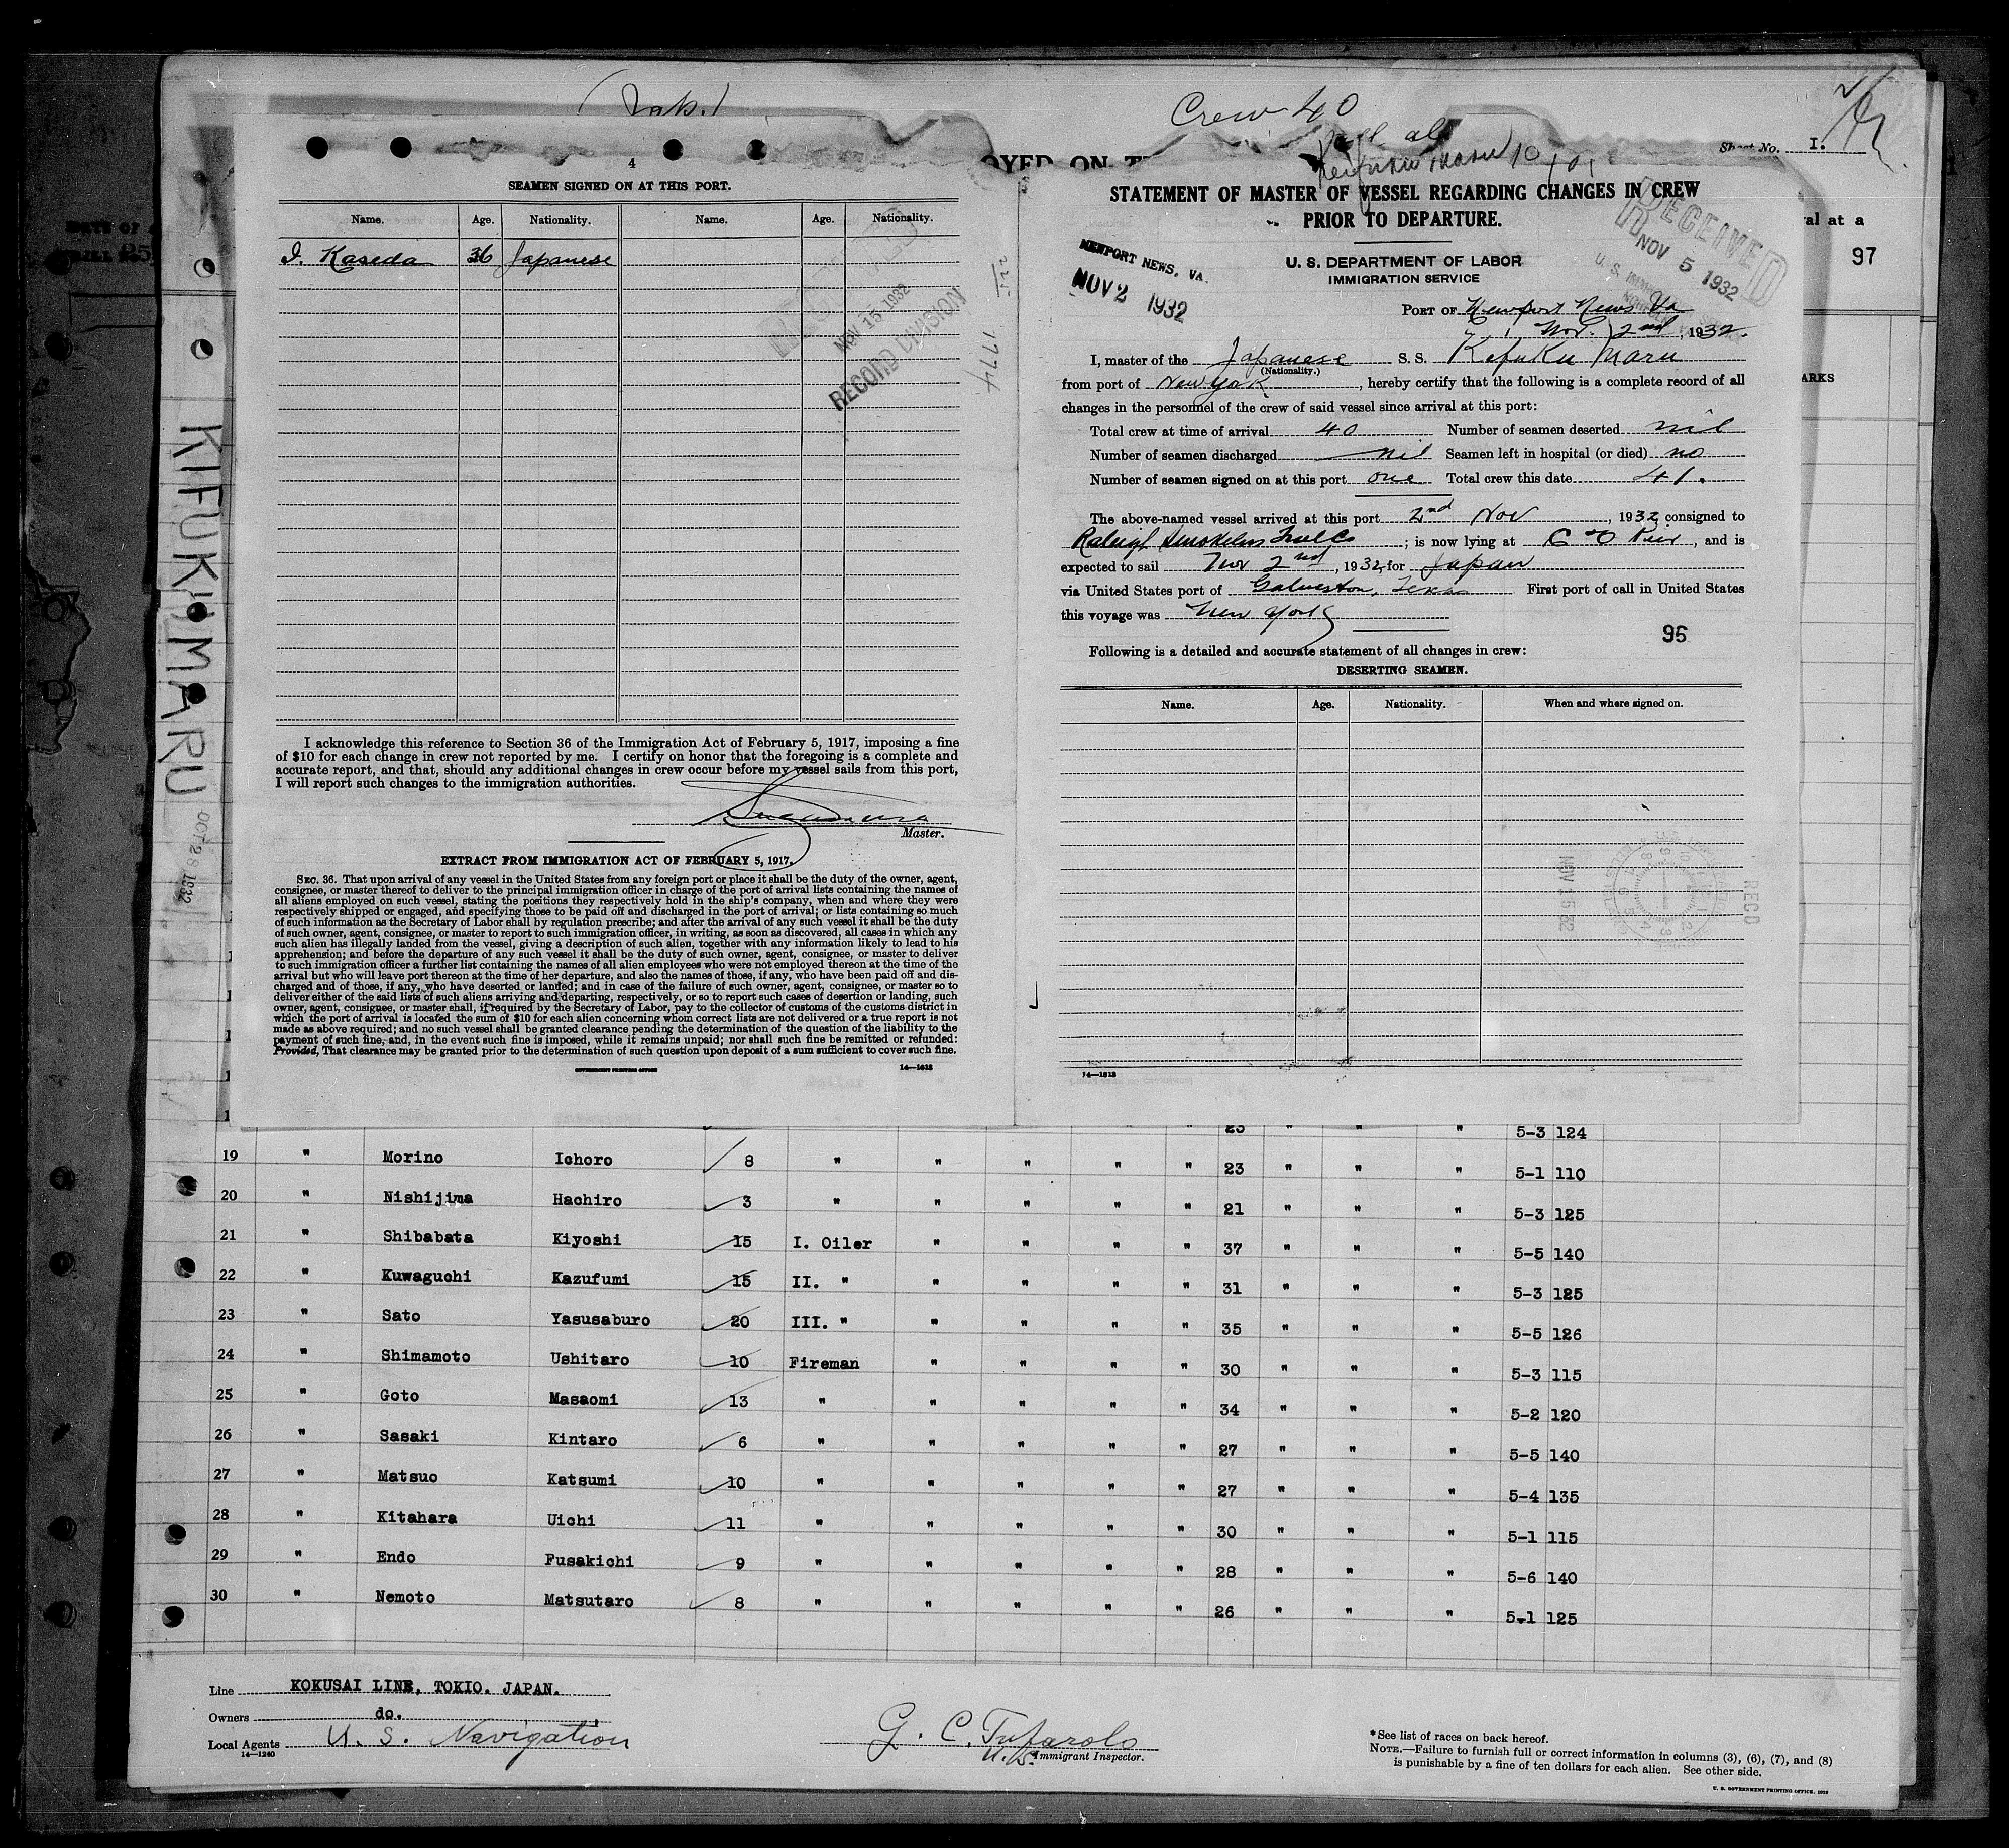 Crew 40
Sheet No. I.
OYED ON
val at a
97
ARKS
KIFUKU MARU
OCT 28 1932
4
SEAMEN SIGNED ON AT THIS PORT.
Name. Age. Nationality. Name. Age. Nationality.
I. Kaseda 36 Japanese
NOV 15 1932
RECORD DIVISION
1774
I acknowledge this reference to Section 36 of the Immigration Act of February 5, 1917, imposing a fine
of $10 for each change in crew not reported by me. I certify on honor that the foregoing is a complete and
accurate report, and that, should any additional changes in crew occur before my vessel sails from this port,
I will report such changes to the immigration authorities.
Master.
EXTRACT FROM IMMIGRATION ACT OF FEBRUARY 5, 1917.
SEC. 36. That upon arrival of any vessel in the United States from any foreign port or place it shall be the duty of the owner, agent,
consignee, or master thereof to deliver to the principal immigration officer in charge of the port of arrival lists containing the names of
all aliens employed on such vessel, stating the positions they respectively hold in the ship's company, when and where they were
respectively shipped or engaged, and specifying those to be paid off and discharged in the port of arrival; or lists containing so much
of such information as the Secretary of Labor shall by regulation prescribe; and after the arrival of any such vessel it shall be the duty
of such owner, agent, consignee, or master to report to such immigration officer, in writing, as soon as discovered, all cases in which any
such alien has illegally landed from the vessel, giving a description of such alien, together with any information likely to lead to his
apprehension; and before the departure of any such vessel it shall be the duty of such owner, agent, consignee, or master to deliver
to such immigration officer a further list containing the names of all alien employees who were not employed thereon at the time of the
arrival but who will leave port thereon at the time of her departure, and also the names of those, if any, who have been paid off and dis-
charged and of those, if any, who have deserted or landed; and in case of the failure of such owner, agent, consignee, or master so to
deliver either of the said lists of such aliens arriving and departing, respectively, or so to report such cases of desertion or landing, such
owner, agent, consignee, or master shall, if required by the Secretary of Labor, pay to the collector of customs of the customs district in
which the port of arrival is located the sum of $10 for each alien concerning whom correct lists are not delivered or a true report is not
made as above required; and no such vessel shall be granted clearance pending the determination of the question of the liability to the
payment of such fine, and, in the event such fine is imposed, while it remains unpaid; nor shall such fine be remitted or refunded:
Provided, That clearance may be granted prior to the determination of such question upon deposit of a sum sufficient to cover such fine.
GOVERNMENT PRINTING OFFICE 14—1613
STATEMENT OF MASTER OF VESSEL REGARDING CHANGES IN CREW
PRIOR TO DEPARTURE.
NEWPORT NEWS, VA.
NOV 2 1932
RECEIVED
NOV 5 1932
U. S. DEPARTMENT OF LABOR
IMMIGRATION SERVICE
PORT OF Newport News Va
Nov. 2nd, 1932.
I, master of the Japanese S. S. Kifuku Maru
(Nationality.)
from port of New York, hereby certify that the following is a complete record of all
changes in the personnel of the crew of said vessel since arrival at this port:
Total crew at time of arrival 40 Number of seamen deserted nil
Number of seamen discharged nil Seamen left in hospital (or died) no
Number of seamen signed on at this port one Total crew this date 41.
The above-named vessel arrived at this port 2nd Nov, 1932, consigned to
Raleigh Smokeless Fuel Co; is now lying at C & O Pier, and is
expected to sail Nov 2nd, 1932, for Japan
via United States port of Galveston, Texas First port of call in United States
this voyage was New York
96
Following is a detailed and accurate statement of all changes in crew:
DESERTING SEAMEN.
Name. Age. Nationality. When and where signed on.
NOV 15 32
RECD
14—1613
25 " " " 5-3 124
19 " Morino Ichoro 8 " " " " " 23 " " " 5-1 110
20 " Nishijima Hachiro 3 " " " " " 21 " " " 5-3 125
21 " Shibabata Kiyoshi 15 I. Oiler " " " " 37 " " " 5-5 140
22 " Kuwaguchi Kazufumi 15 II. " " " " " 31 " " " 5-3 125
23 " Sato Yasusaburo 20 III. " " " " " 35 " " " 5-5 126
24 " Shimamoto Ushitaro 10 Fireman " " " " 30 " " " 5-3 115
25 " Goto Masaomi 13 " " " " " 34 " " " 5-2 120
26 " Sasaki Kintaro 6 " " " " " 27 " " " 5-5 140
27 " Matsuo Katsumi 10 " " " " " 27 " " " 5-4 135
28 " Kitahara Uichi 11 " " " " " 30 " " " 5-1 115
29 " Endo Fusakichi 9 " " " " " 28 " " " 5-6 140
30 " Nemoto Matsutaro 8 " " " " " 26 " " " 5-1 125
Line KOKUSAI LINE, TOKIO. JAPAN.
Owners do.
Local Agents U. S. Navigation
14—1240
G. C. Tufarolo
U.S. Immigrant Inspector.
*See list of races on back hereof.
NOTE.—Failure to furnish full or correct information in columns (3), (6), (7), and (8)
is punishable by a fine of ten dollars for each alien. See other side.
U. S. GOVERNMENT PRINTING OFFICE. 1929